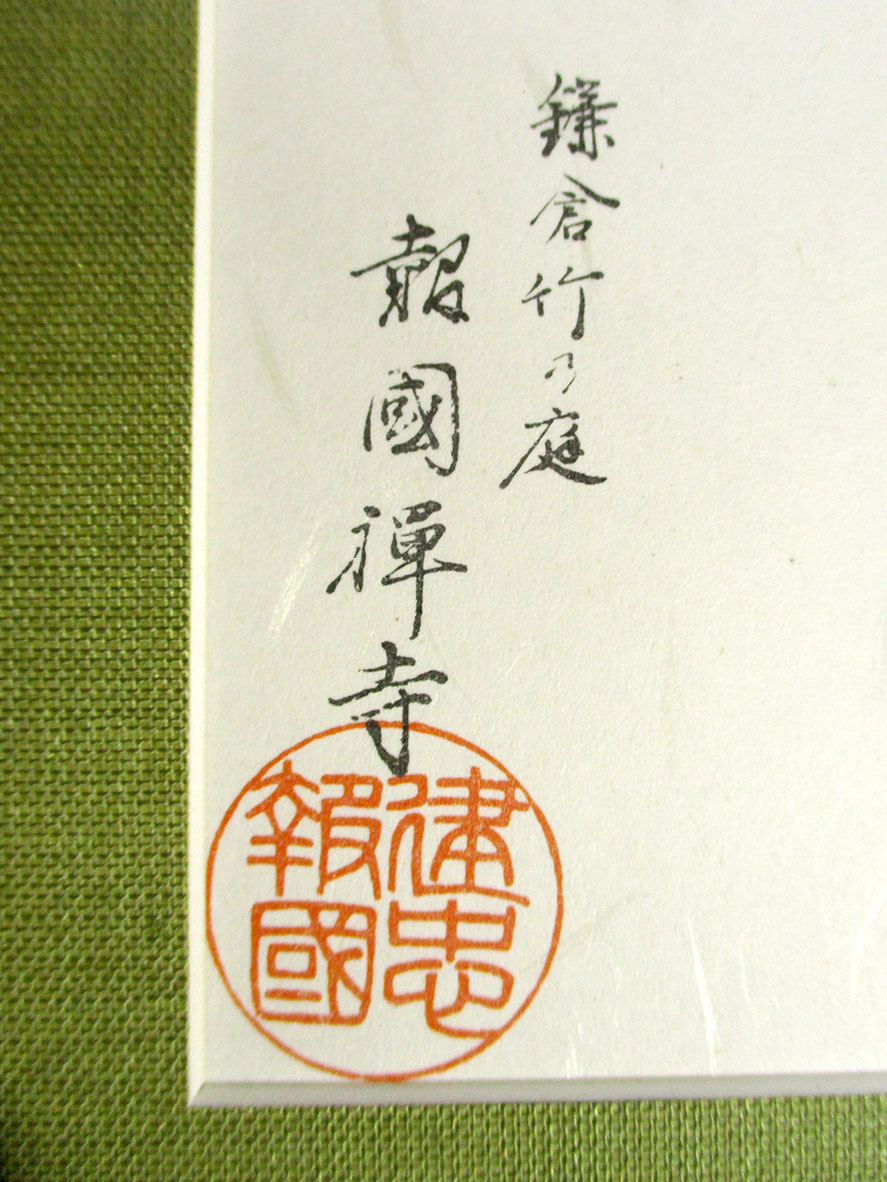 鎌倉竹の庭
報國禅寺
建忠
報國